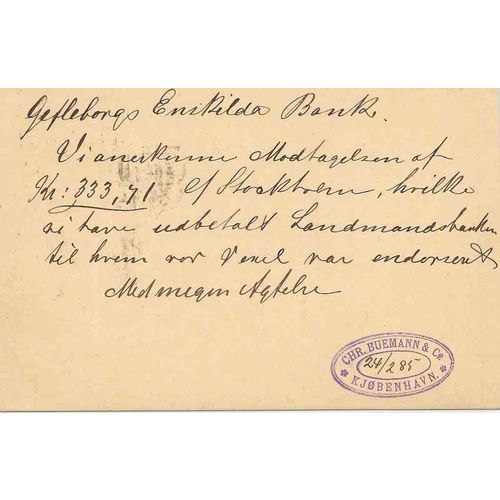 Gefleborgs Enskilda Bank.
Vi anerkenne Modtagelsen af
Kr: 333,71 pf Stockholm, hvilke
vi have udbetalt Landmandsbanken
til hvem vor Vexel var endorseret
Med megen Agtelse
CHR. BUEMANN & Co
24/2 85
KJØBENHAVN.